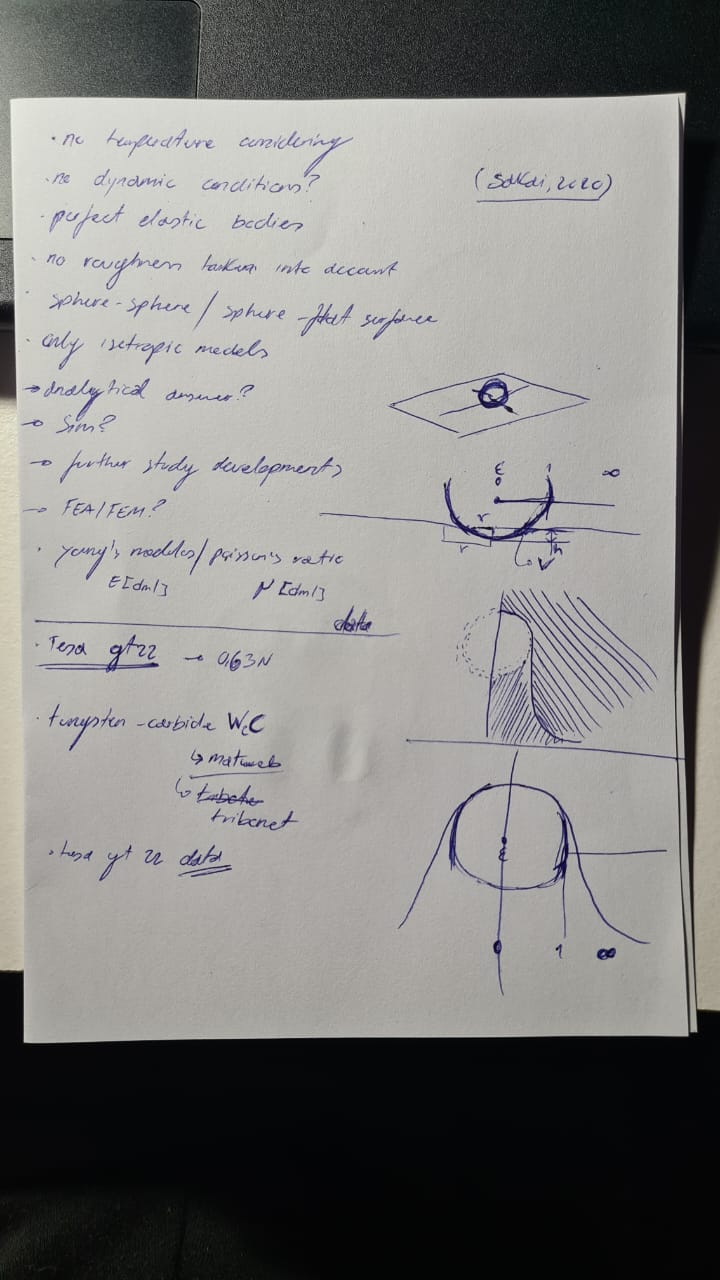 · no temperature considering
· no dynamic conditions?
(Sakai, 2020)
· perfect elastic bodies
· no roughness taken into account
· sphere-sphere / sphere-flat surface
· only isotropic models
→ analytical answer?
→ Sim?
→ further study developments
→ FEA/FEM?
· young's modulus/poisson's ratio
E[dml] [dml]
ε 1 ∞
r
r h
V
data
· Tesa gt22 → 0,63N
· tungsten-carbide WC
↳ matweb
↳ tribonet
· tesa gt 22 data
ε
0 1 ∞